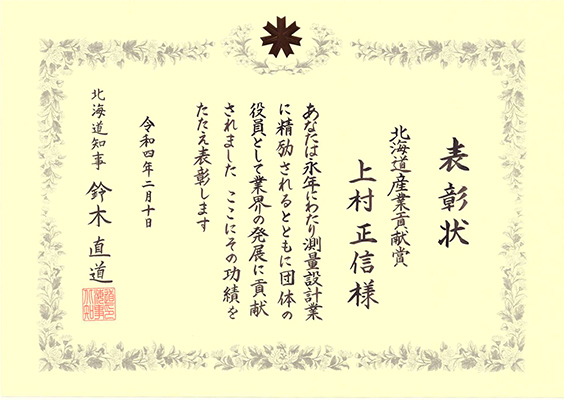 表彰状
北海道産業貢献賞
上村正信様
あなたは永年にわたり測量設計業
に精励されるとともに団体の
役員として業界の発展に貢献
されました ここにその功績を
たたえ表彰します
令和四年二月十日
北海道知事 鈴木直道